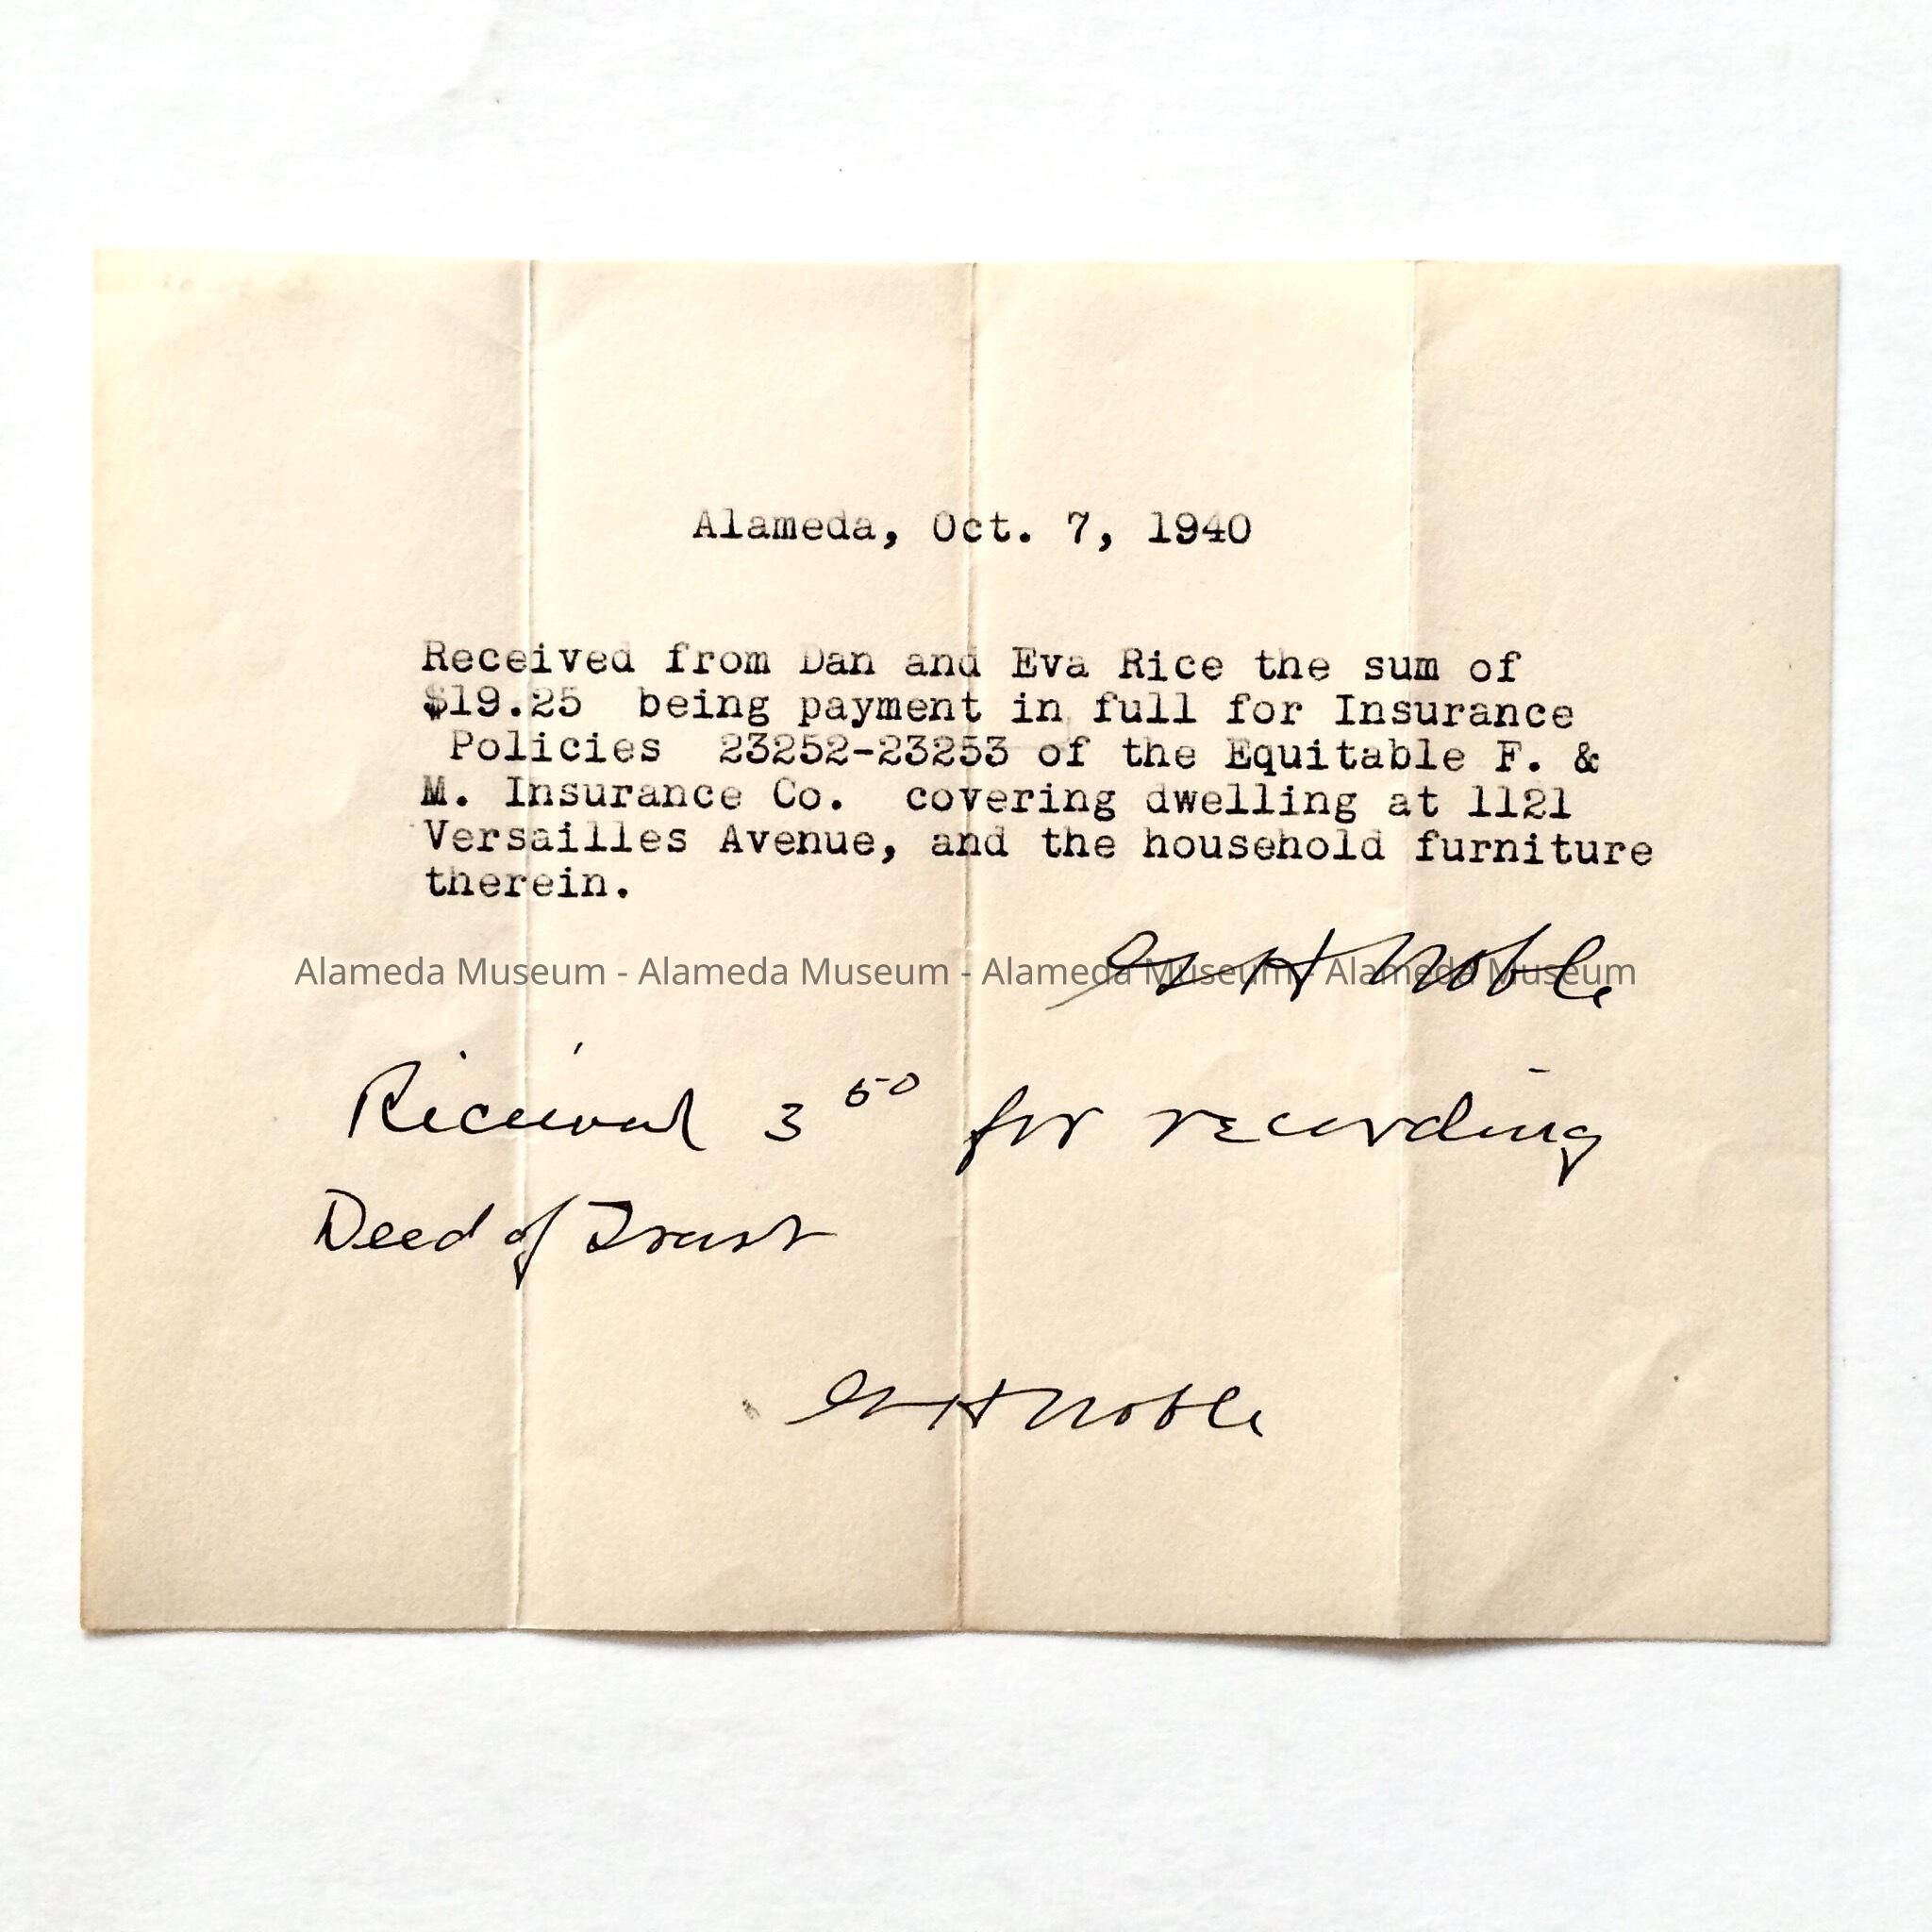 Alameda, Oct. 7, 1940
Received from Dan and Eva Rice the sum of
$19.25 being payment in full for Insurance
Policies 23252-23253 of the Equitable F. &
M. Insurance Co. covering dwelling at 1121
Versailles Avenue, and the household furniture
therein.
H Noble
Alameda Museum - Alameda Museum - Alameda Museum - Alameda Museum
Received 3 50 for recording
Deed of Trust
H Noble